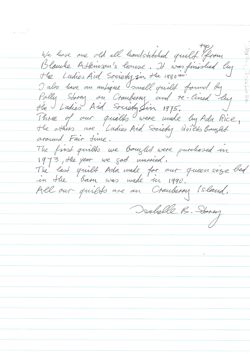 We have one old all handstitched quilt top from
Blanche Attenson's house. It was finished by
the Ladies Aid Society in the 1980s
I also have an antique small quilt found by
Polly Storey on Cranberry and re-lined by
the Ladies' Aid Society in 1975.
Three of our quilts were made by Ada Rice,
the others are Ladies Aid Society quilts bought
around Fair time.
The first quilts we bought were purchased in
1973, the year we got married.
The last quilt Ada made for our queen size bed
in the barn was made in 1990.
All our quilts are on Cranberry Island.
Isabelle B. Storey